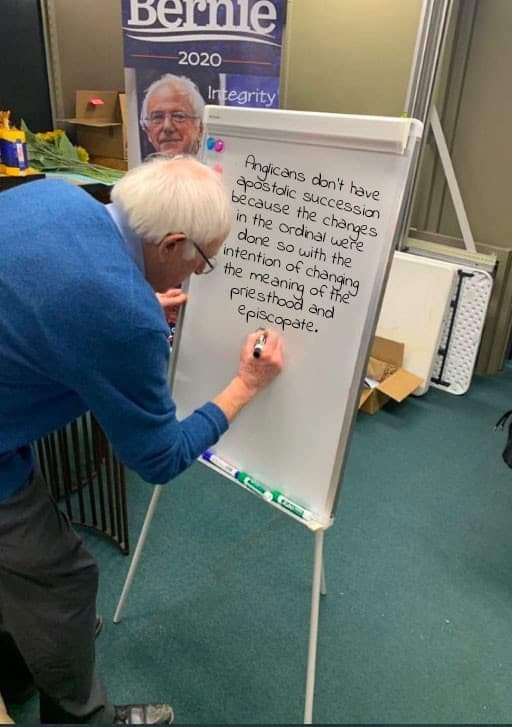 Bernie
2020
Integrity
Anglicans don't have
apostolic succession
because the changes
in the ordinal were
done so with the
intention of changing
the meaning of the
priesthood and
episcopate.